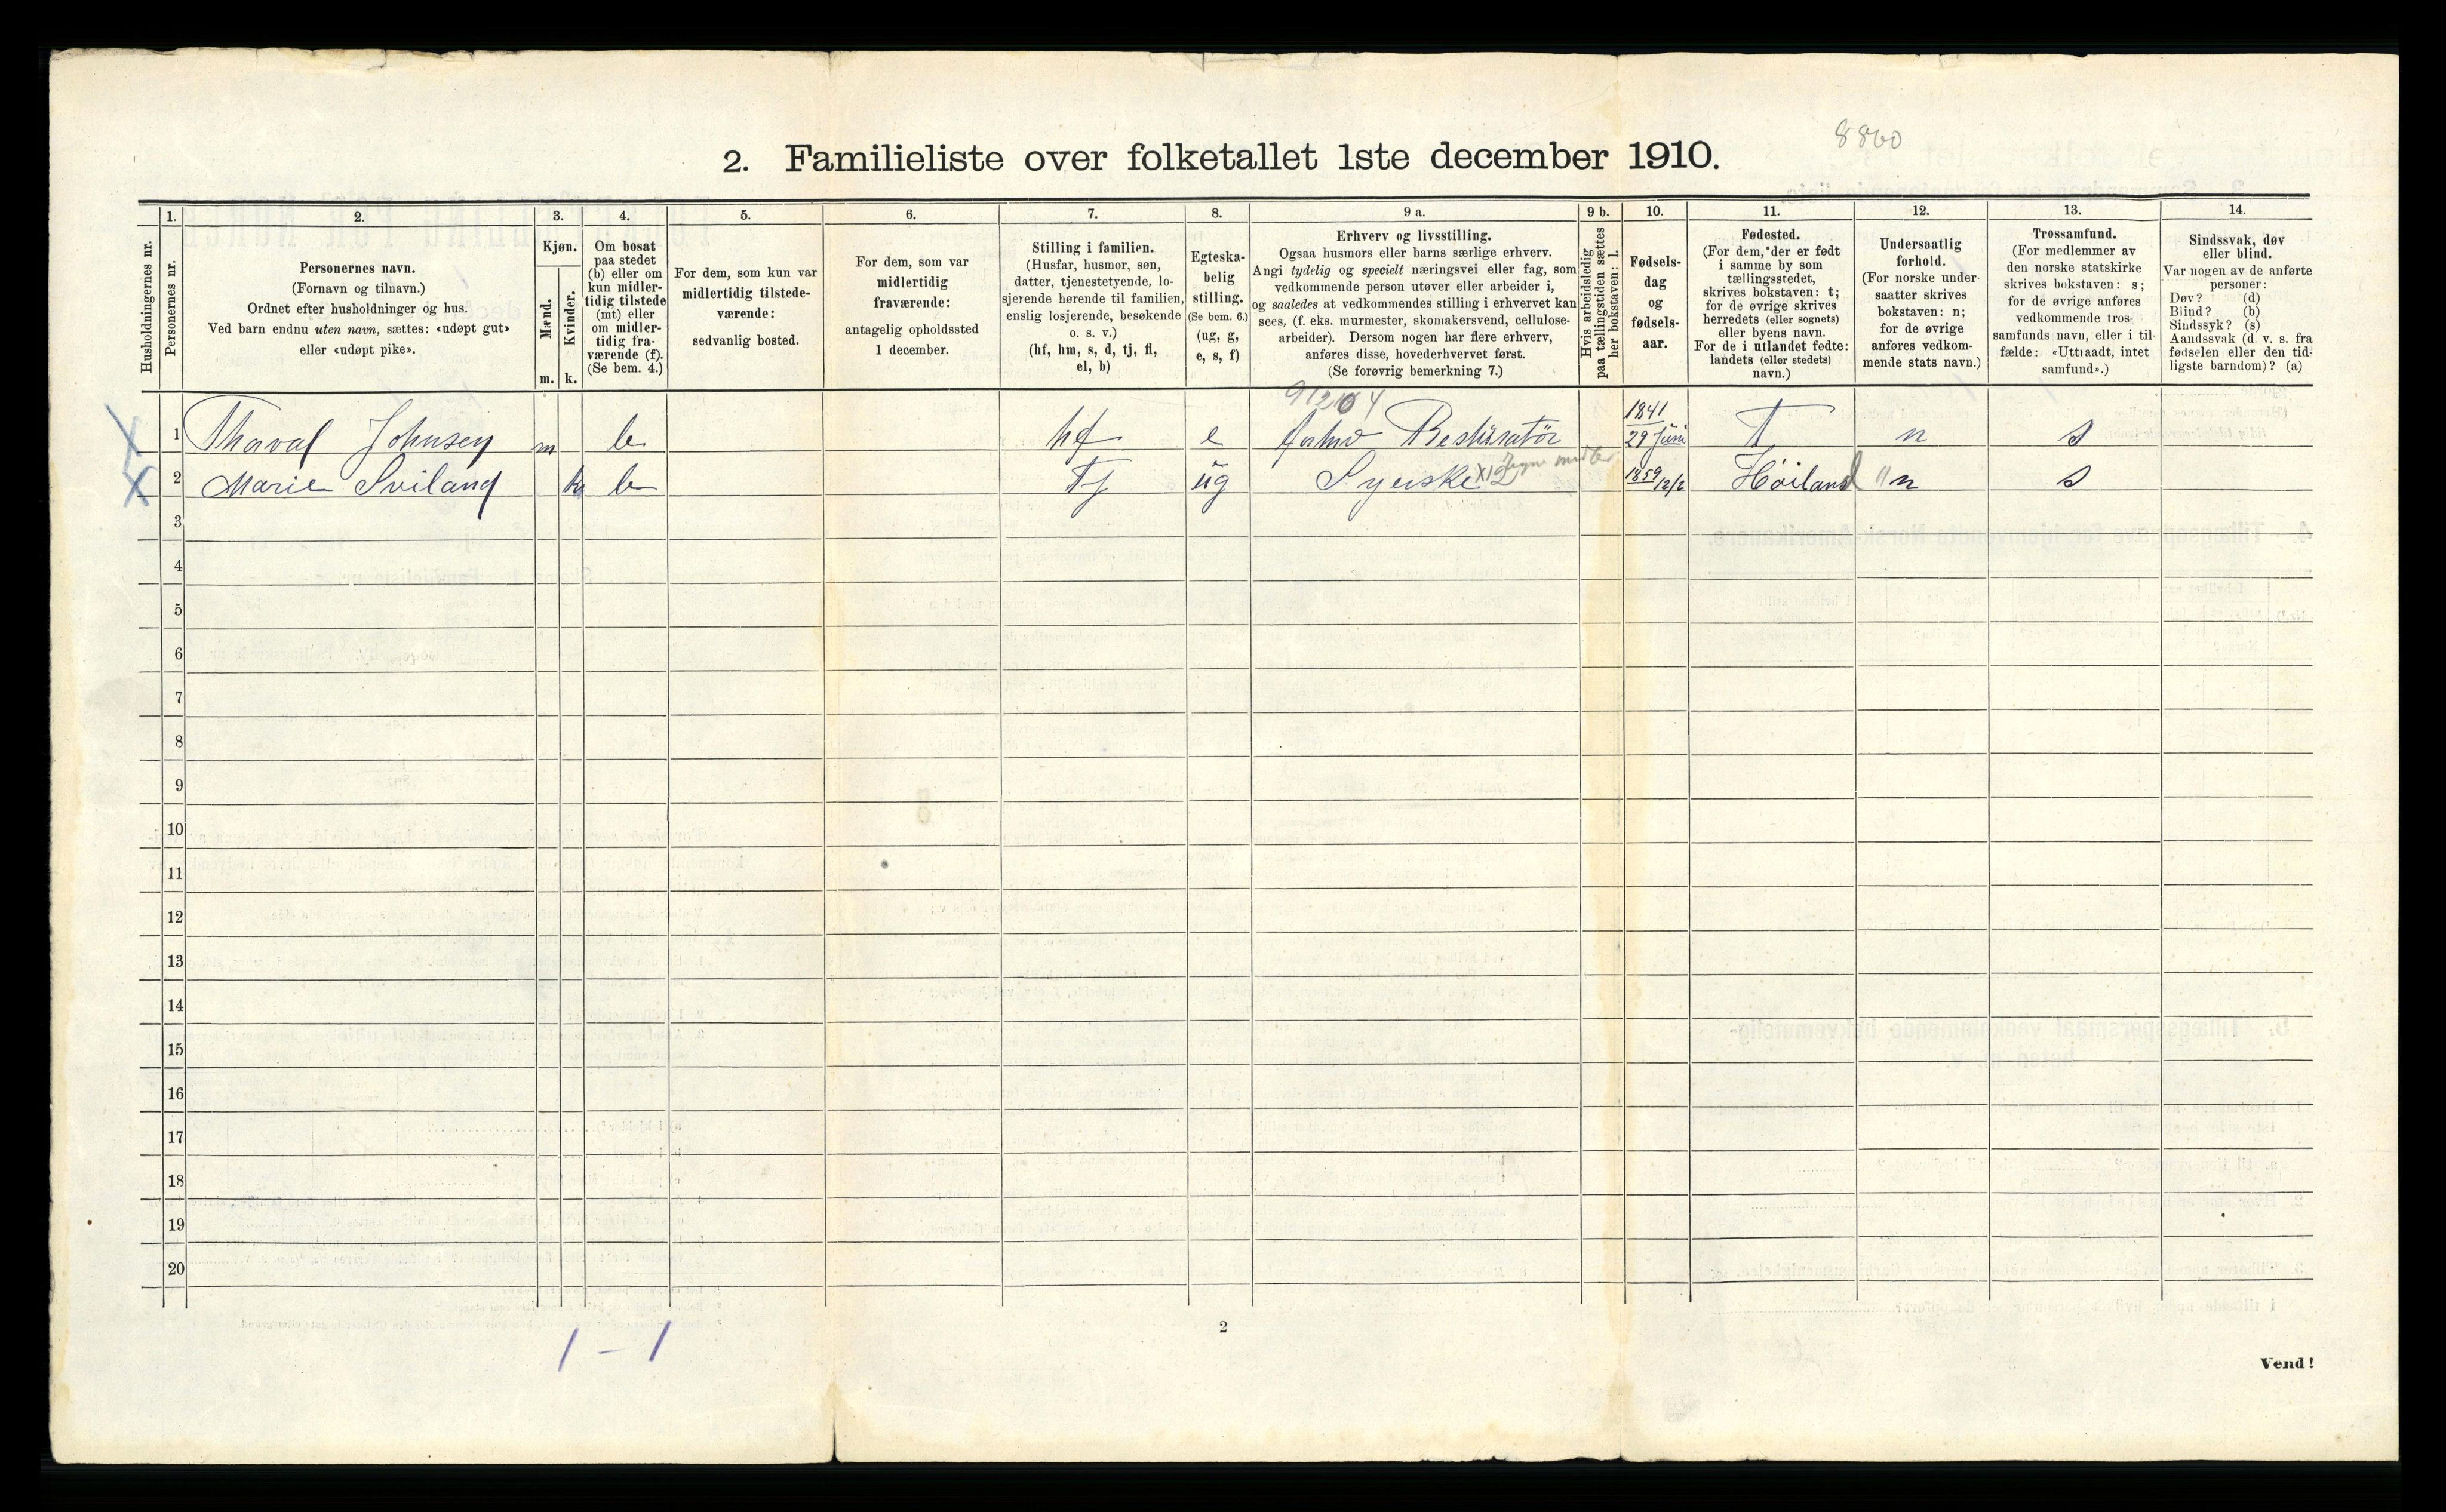 8860
2. Familieliste over folketallet 1ste december 1910.
Husholdningernes nr.
1.
Personernes nr.
2.
Personernes navn.
(Fornavn og tilnavn.)
Ordnet efter husholdninger og hus.
Ved barn endnu uten navn, sættes: «udøpt gut»
eller «udøpt pike».
3.
Kjøn.
Mænd.
Kvinder.
m. k.
4.
Om bosat
paa stedet
(b) eller om
kun midler-
tidig tilstede
(mt) eller
om midler-
tidig fra-
værende (f).
(Se bem. 4.)
5.
For dem, som kun var
midlertidig tilstede-
værende:
sedvanlig bosted.
6.
For dem, som var
midlertidig
fraværende:
antagelig opholdssted
1 december.
7.
Stilling i familien.
(Husfar, husmor, søn,
datter, tjenestetyende, lo-
sjerende hørende til familien,
enslig losjerende, besøkende
o. s. v.)
(hf, hm, s, d, tj, fl,
el, b)
8.
Egteska-
belig
stilling.
(Se bem. 6.)
(ug, g,
e, s, f)
9 a.
Erhverv og livsstilling.
Ogsaa husmors eller barns særlige erhverv.
Angi tydelig og specielt næringsvei eller fag, som
vedkommende person utøver eller arbeider i,
og saaledes at vedkommendes stilling i erhvervet kan
sees, (f. eks. murmester, skomakersvend, cellulose-
arbeider). Dersom nogen har flere erhverv,
anføres disse, hovederhvervet først.
(Se forøvrig bemerkning 7.)
9 b.
Hvis arbeidsledig
paa tællingstiden sættes
her bokstaven: l.
10.
Fødsels-
dag
og
fødsels-
aar.
11.
Fødested.
(For dem, der er født
i samme by som
tællingsstedet,
skrives bokstaven: t;
for de øvrige skrives
herredets (eller sognets)
eller byens navn.
For de i utlandet fødte:
landets (eller stedets)
navn.)
12.
Undersaatlig
forhold.
(For norske under-
saatter skrives
bokstaven: n;
for de øvrige
anføres vedkom-
mende stats navn.)
13.
Trossamfund.
(For medlemmer av
den norske statskirke
skrives bokstaven: s;
for de øvrige anføres
vedkommende tros-
samfunds navn, eller i til-
fælde: «Uttraadt, intet
samfund».)
14.
Sindssvak, døv
eller blind.
Var nogen av de anførte
personer:
Døv? (d)
Blind? (b)
Sindssyk? (s)
Aandssvak (d. v. s. fra
fødselen eller den tid-
ligste barndom)? (a)
1 Thorval Johnsen m b hf e Restüratör 1841 29 juni t n s
2 Marie Sviland k b Tj üg Syerske 1859 12/2 Höiland n s
3
4
5
6
7
8
9
10
11
12
13
14
15
16
17
18
19
20
1 - 1
2
Vend!